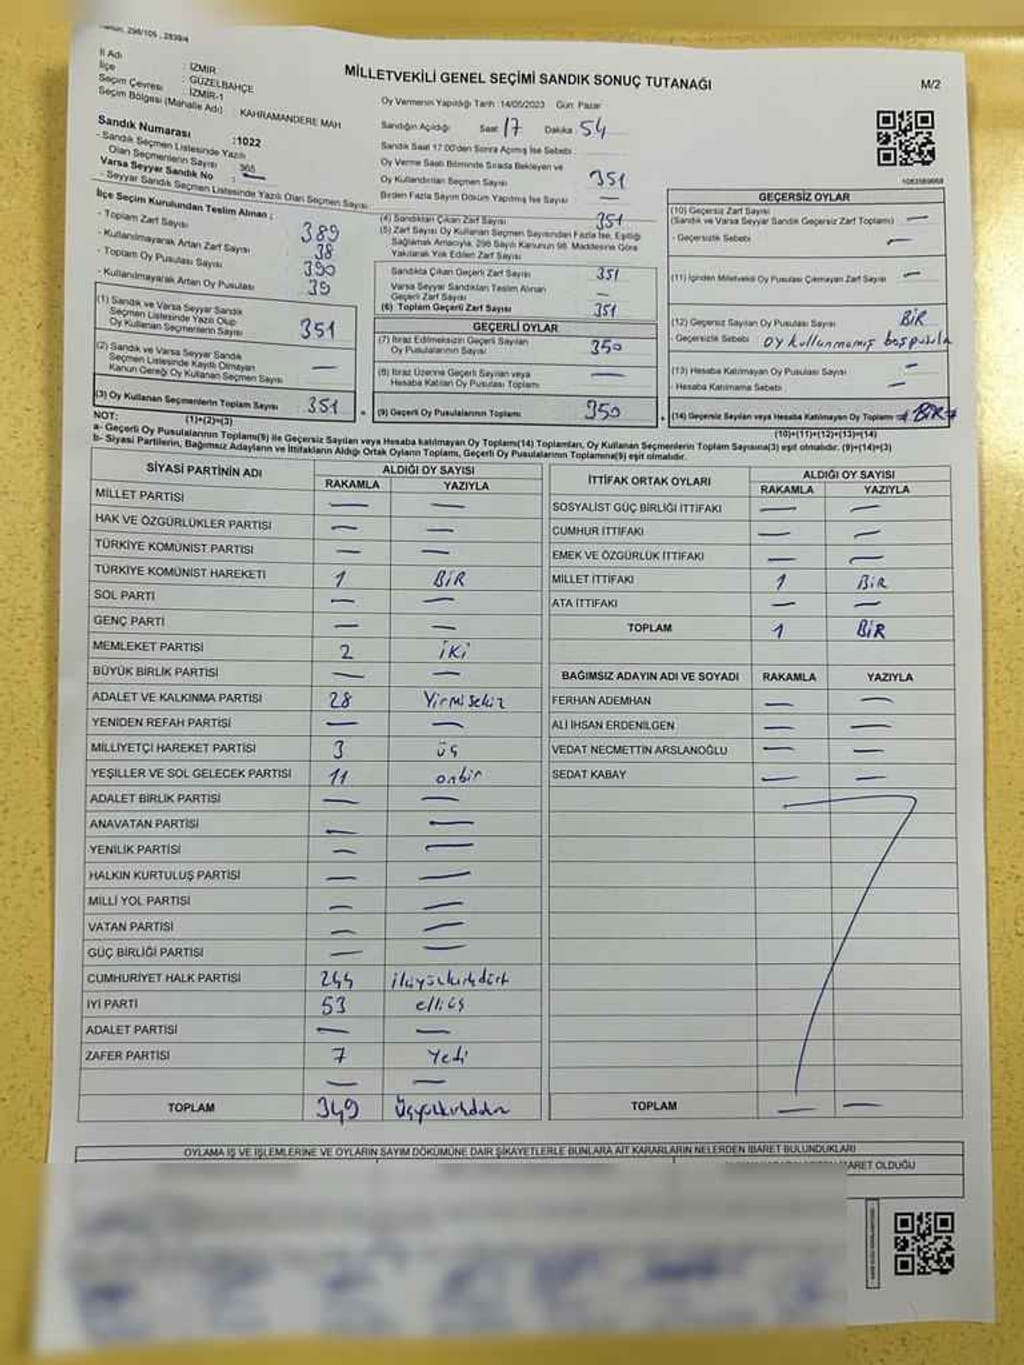 298/105 , 2839/4
İl Adı : İZMİR
İlçe : GÜZELBAHÇE
Seçim Çevresi : İZMİR-1
Seçim Bölgesi (Mahalle Adı) : KAHRAMANDERE MAH
Sandık Numarası :1022
- Sandık Seçmen Listesinde Yazılı
Olan Seçmenlerin Sayısı : 365
Varsa Seyyar Sandık No : —
- Seyyar Sandık Seçmen Listesinde Yazılı Olan Seçmen Sayısı
MİLLETVEKİLİ GENEL SEÇİMİ SANDIK SONUÇ TUTANAĞI
M/2
Oy Vermenin Yapıldığı Tarih :14/05/2023 Gün: Pazar
Sandığın Açıldığı Saat 17 Dakika 54
Sandık Saat 17:00'den Sonra Açılmış İse Sebebi
Oy Verme Saati Bitiminde Sırada Bekleyen ve
Oy Kullandırılan Seçmen Sayısı 351
Birden Fazla Sayım Döküm Yapılmış İse Sayısı —
İlçe Seçim Kurulundan Teslim Alınan ;
- Toplam Zarf Sayısı 389
- Kullanılmayarak Artan Zarf Sayısı 38
- Toplam Oy Pusulası Sayısı 390
- Kullanılmayarak Artan Oy Pusulası 39
(1) Sandık ve Varsa Seyyar Sandık
Seçmen Listesinde Yazılı Olup
Oy Kullanan Seçmenlerin Sayısı 351
(2) Sandık ve Varsa Seyyar Sandık
Seçmen Listesinde Kayıtlı Olmayan
Kanun Gereği Oy Kullanan Seçmen Sayısı —
(3) Oy Kullanan Seçmenlerin Toplam Sayısı 351
(1)+(2)=(3)
(4) Sandıktan Çıkan Zarf Sayısı 351
(5) Zarf Sayısı Oy Kullanan Seçmen Sayısından Fazla İse, Eşitliği
Sağlamak Amacıyla, 298 Sayılı Kanunun 98. Maddesine Göre
Yakılarak Yok Edilen Zarf Sayısı
Sandıkta Çıkan Geçerli Zarf Sayısı 351
Varsa Seyyar Sandıktan Teslim Alınan
Geçerli Zarf Sayısı —
(6) Toplam Geçerli Zarf Sayısı 351
GEÇERLİ OYLAR
(7) İtiraz Edilmeksizin Geçerli Sayılan
Oy Pusulalarının Sayısı 350
(8) İtiraz Üzerine Geçerli Sayılan veya
Hesaba Katılan Oy Pusulası Toplamı —
(9) Geçerli Oy Pusulalarının Toplamı 350
GEÇERSİZ OYLAR
(10) Geçersiz Zarf Sayısı
(Sandık ve Varsa Seyyar Sandık Geçersiz Zarf Toplamı) —
- Geçersizlik Sebebi —
(11) İçinden Milletvekili Oy Pusulası Çıkmayan Zarf Sayısı —
(12) Geçersiz Sayılan Oy Pusulası Sayısı BİR
- Geçersizlik Sebebi oy kullanmamış boş pusula
(13) Hesaba Katılmayan Oy Pusulası Sayısı —
- Hesaba Katılmama Sebebi —
(14) Geçersiz Sayılan veya Hesaba Katılmayan Oy Toplamı # BİR #
(10)+(11)+(12)+(13)=(14)
NOT:
a- Geçerli Oy Pusulalarının Toplamı(9) ile Geçersiz Sayılan veya Hesaba katılmayan Oy Toplamı(14) Toplamları, Oy Kullanan Seçmenlerin Toplam Sayısına(3) eşit olmalıdır. (9)+(14)=(3)
b- Siyasi Partilerin, Bağımsız Adayların ve İttifakların Aldığı Ortak Oyların Toplamı, Geçerli Oy Pusulalarının Toplamına(9) eşit olmalıdır.
SİYASİ PARTİNİN ADI ALDIĞI OY SAYISI
RAKAMLA YAZIYLA
MİLLET PARTİSİ — —
HAK VE ÖZGÜRLÜKLER PARTİSİ — —
TÜRKİYE KOMÜNİST PARTİSİ — —
TÜRKİYE KOMÜNİST HAREKETİ 1 BİR
SOL PARTİ — —
GENÇ PARTİ — —
MEMLEKET PARTİSİ 2 İKİ
BÜYÜK BİRLİK PARTİSİ — —
ADALET VE KALKINMA PARTİSİ 28 Yirmi sekiz
YENİDEN REFAH PARTİSİ — —
MİLLİYETÇİ HAREKET PARTİSİ 3 üç
YEŞİLLER VE SOL GELECEK PARTİSİ 11 onbir
ADALET BİRLİK PARTİSİ — —
ANAVATAN PARTİSİ — —
YENİLİK PARTİSİ — —
HALKIN KURTULUŞ PARTİSİ — —
MİLLİ YOL PARTİSİ — —
VATAN PARTİSİ — —
GÜÇ BİRLİĞİ PARTİSİ — —
CUMHURİYET HALK PARTİSİ 244 ikiyüzkırkdört
İYİ PARTİ 53 elliüç
ADALET PARTİSİ — —
ZAFER PARTİSİ 7 Yedi
— —
TOPLAM 349 Üçyüzkırkdokuz
İTTİFAK ORTAK OYLARI ALDIĞI OY SAYISI
RAKAMLA YAZIYLA
SOSYALİST GÜÇ BİRLİĞİ İTTİFAKI — —
CUMHUR İTTİFAKI — —
EMEK VE ÖZGÜRLÜK İTTİFAKI — —
MİLLET İTTİFAKI 1 BİR
ATA İTTİFAKI — —
TOPLAM 1 BİR
BAĞIMSIZ ADAYIN ADI VE SOYADI RAKAMLA YAZIYLA
FERHAN ADEMHAN — —
ALİ İHSAN ERDENİLGEN — —
VEDAT NECMETTİN ARSLANOĞLU — —
SEDAT KABAY — —
TOPLAM — —
OYLAMA İŞ VE İŞLEMLERİNE VE OYLARIN SAYIM DÖKÜMÜNE DAİR ŞİKAYETLERLE BUNLARA AİT KARARLARIN NELERDEN İBARET BULUNDUKLARI
OLDUĞU